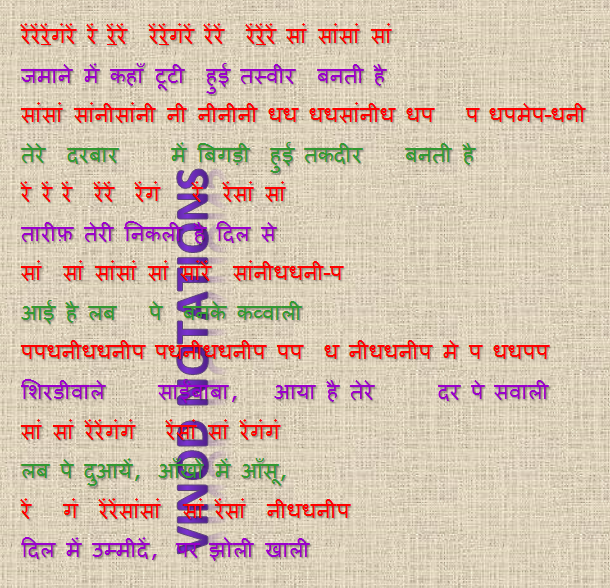 रेंरेंरे॒ंगंरें रें रे॒ंरें रेंरे॒ंगंरें रेंरें रेंरे॒ंरें सां सांसां सां
जमाने में कहाँ टूटी हुई तस्वीर बनती है
सांसां सांनीसांनी नी नीनीनी धध धधसांनीध धप प धपमेप-धनी
तेरे दरबार में बिगड़ी हुई तकदीर बनती है
रें रें रें रेंरें रेंगं रें रेंसां सां
तारीफ़ तेरी निकली है दिल से
सां सां सांसां सां सांरें सांनीधधनी-प
आई है लब पे बनके कव्वाली
पपधनीधधनीप पधनीधधनीप पप ध नीधधनीप मे प धधपप
शिरडीवाले साईंबाबा, आया है तेरे दर पे सवाली
सां सां रेंरेंगंगं रेंसां सां रेंगंगं
लब पे दुआयें, आँखों में आँसू,
रें गं रेंरेंसांसां सां रेंसां नीधधनीप
दिल में उम्मीदें, पर झोली खाली
VINOD NOTATIONS